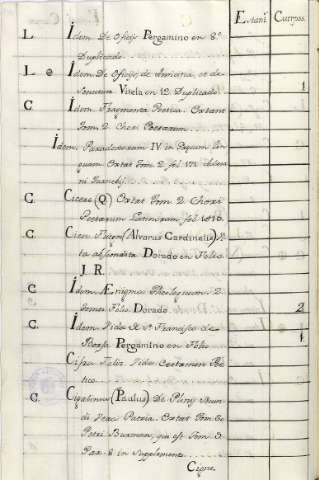 Estanᵗ Cuerpos.
L Idem De Oficijs Pergamino en 8º
Duplicado
L. Idem. De Oficijs, de Amicitia, et de
Senectute Vitela en 12 Duplicado 1
C Idem Fragmenta Poetica Extant
Tom. 2 Chori Poetarum
Idem Paradoxorum IV in
Extat Tom 2 fol
C. Cicero (Q) Extat Tom 2 Chori
Poetarum Latinorum fol 1616.
C. Cien (Alvarus Cardinalis)
Dorado en Folio
J. R.
C. Idem Ænigma Theologicum 2
tomos Folio Dorado 2
C. Idem Vida de Sn Francisco de
Borja Pergamino en Folio 1
Felix Vide Certamen Poe
tico
C. Cigalinus (Paulus) De Plinij Secun
di Vera Patria Extat Tom 6
Petri Burman, qui est Tom
Pax 8 in Supplemento
Cigne.